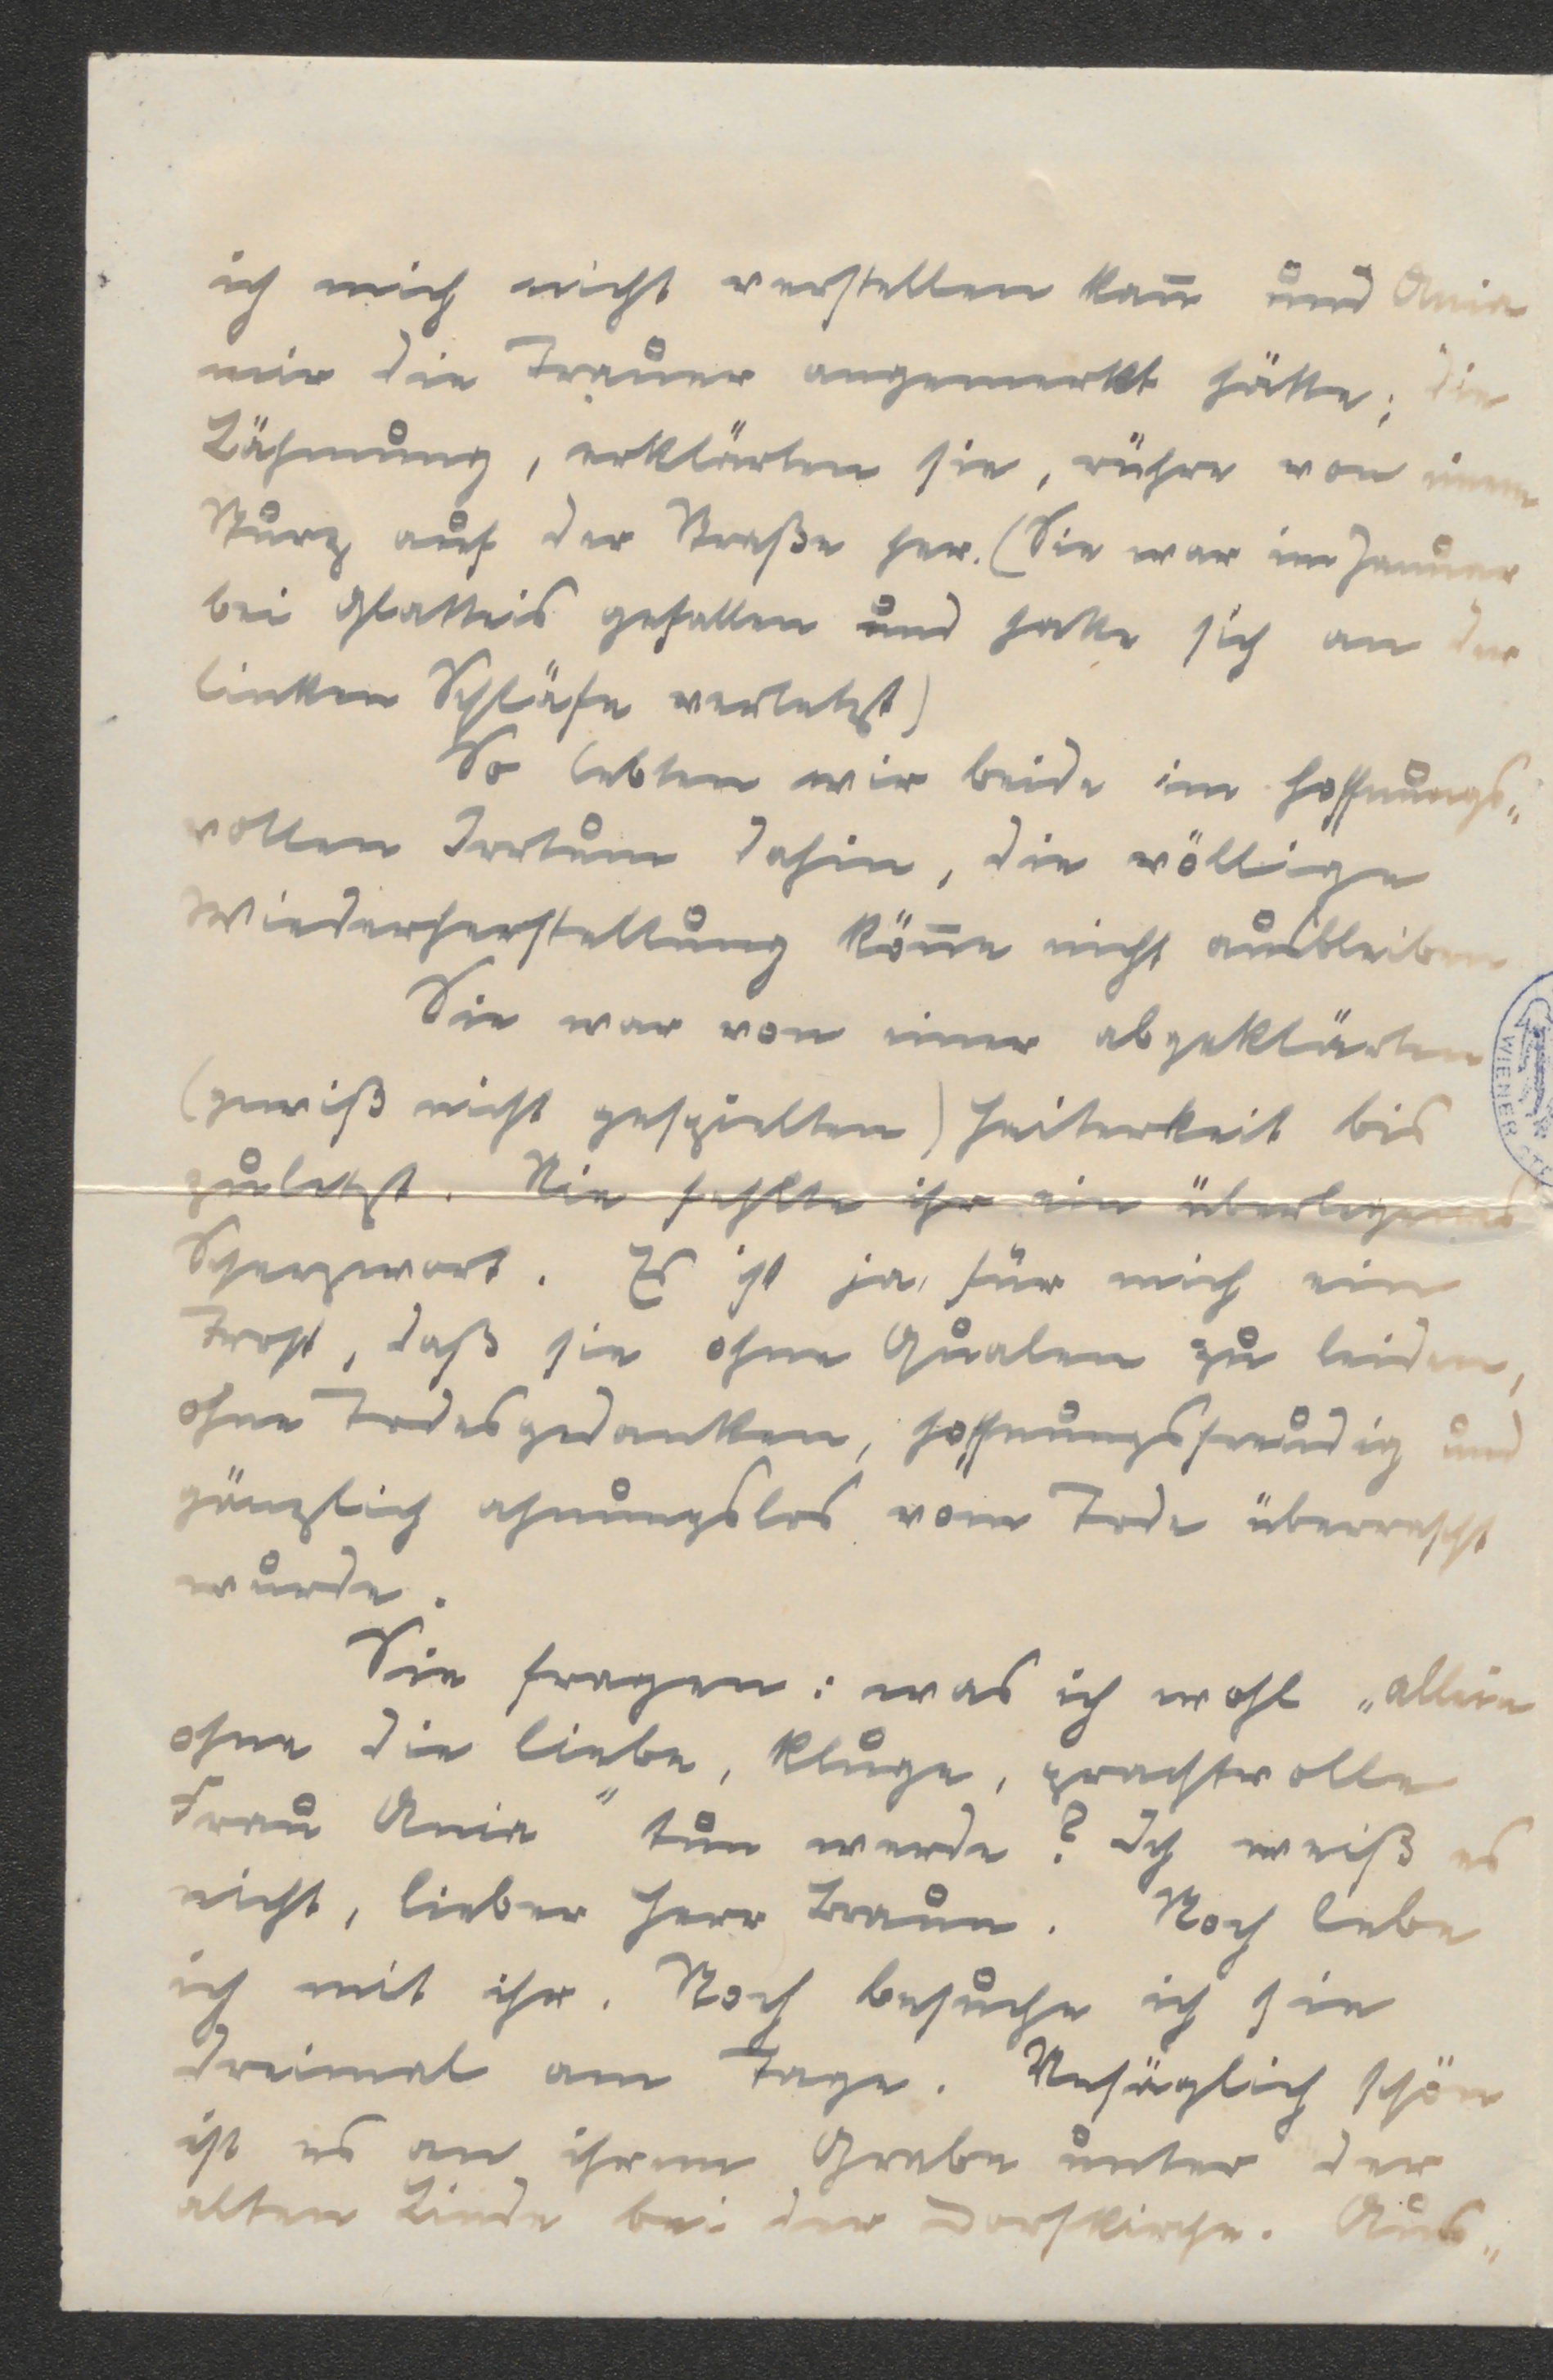 ich mich nicht verstellen kan̄ und Ania
mir die Trauer angemerkt hätte; die
Lähmung, erklärten sie, rühre von einem
Sturz auf der Straße her. (Sie war im Januar
bei Glatteis gefallen und hatte sich an der
linken Schläfe verletzt)
So lebten wir beide im hoffnungs„
vollen Irrtum dahin, die völlige
Wiederherstellung kön̄e nicht ausbleiben
Sie war von einer abgeklärten
(gewiß nicht gespielten) Heiterkeit bis
zuletzt. Nie fehlte ihr ein überlegenes
Scherzwort. Es ist ja für mich ein
Trost, daß sie ohne Qualen zu leiden,
ohne Todesgedanken, hoffnungsfreudig und
gänzlich ahnungslos vom Tode überrascht
wurde.
Sie fragen: was ich wohl „allein
ohne die liebe, kluge, prachtvolle
Frau Ania" tun werde? Ich weiß es
nicht, lieber Herr Braun. Noch lebe
ich mit ihr. Noch besuche ich sie
dreimal am Tage. Unsäglich schön
ist es an ihrem Grabe unter der
alten Linde bei der Dorfkirche. Aus„
WIENER